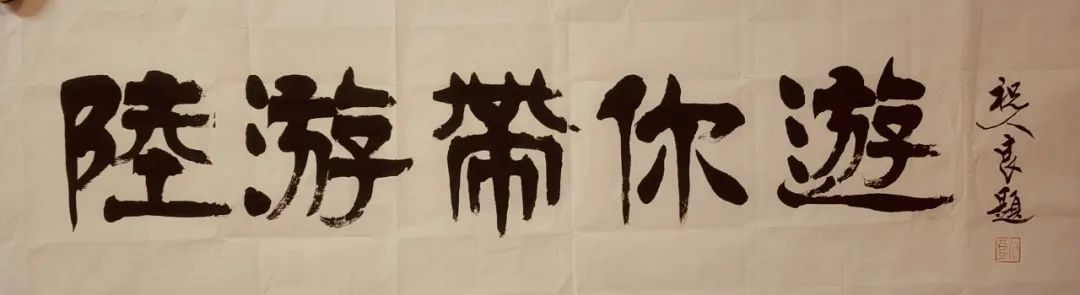 陸游帶你遊
祝人良題